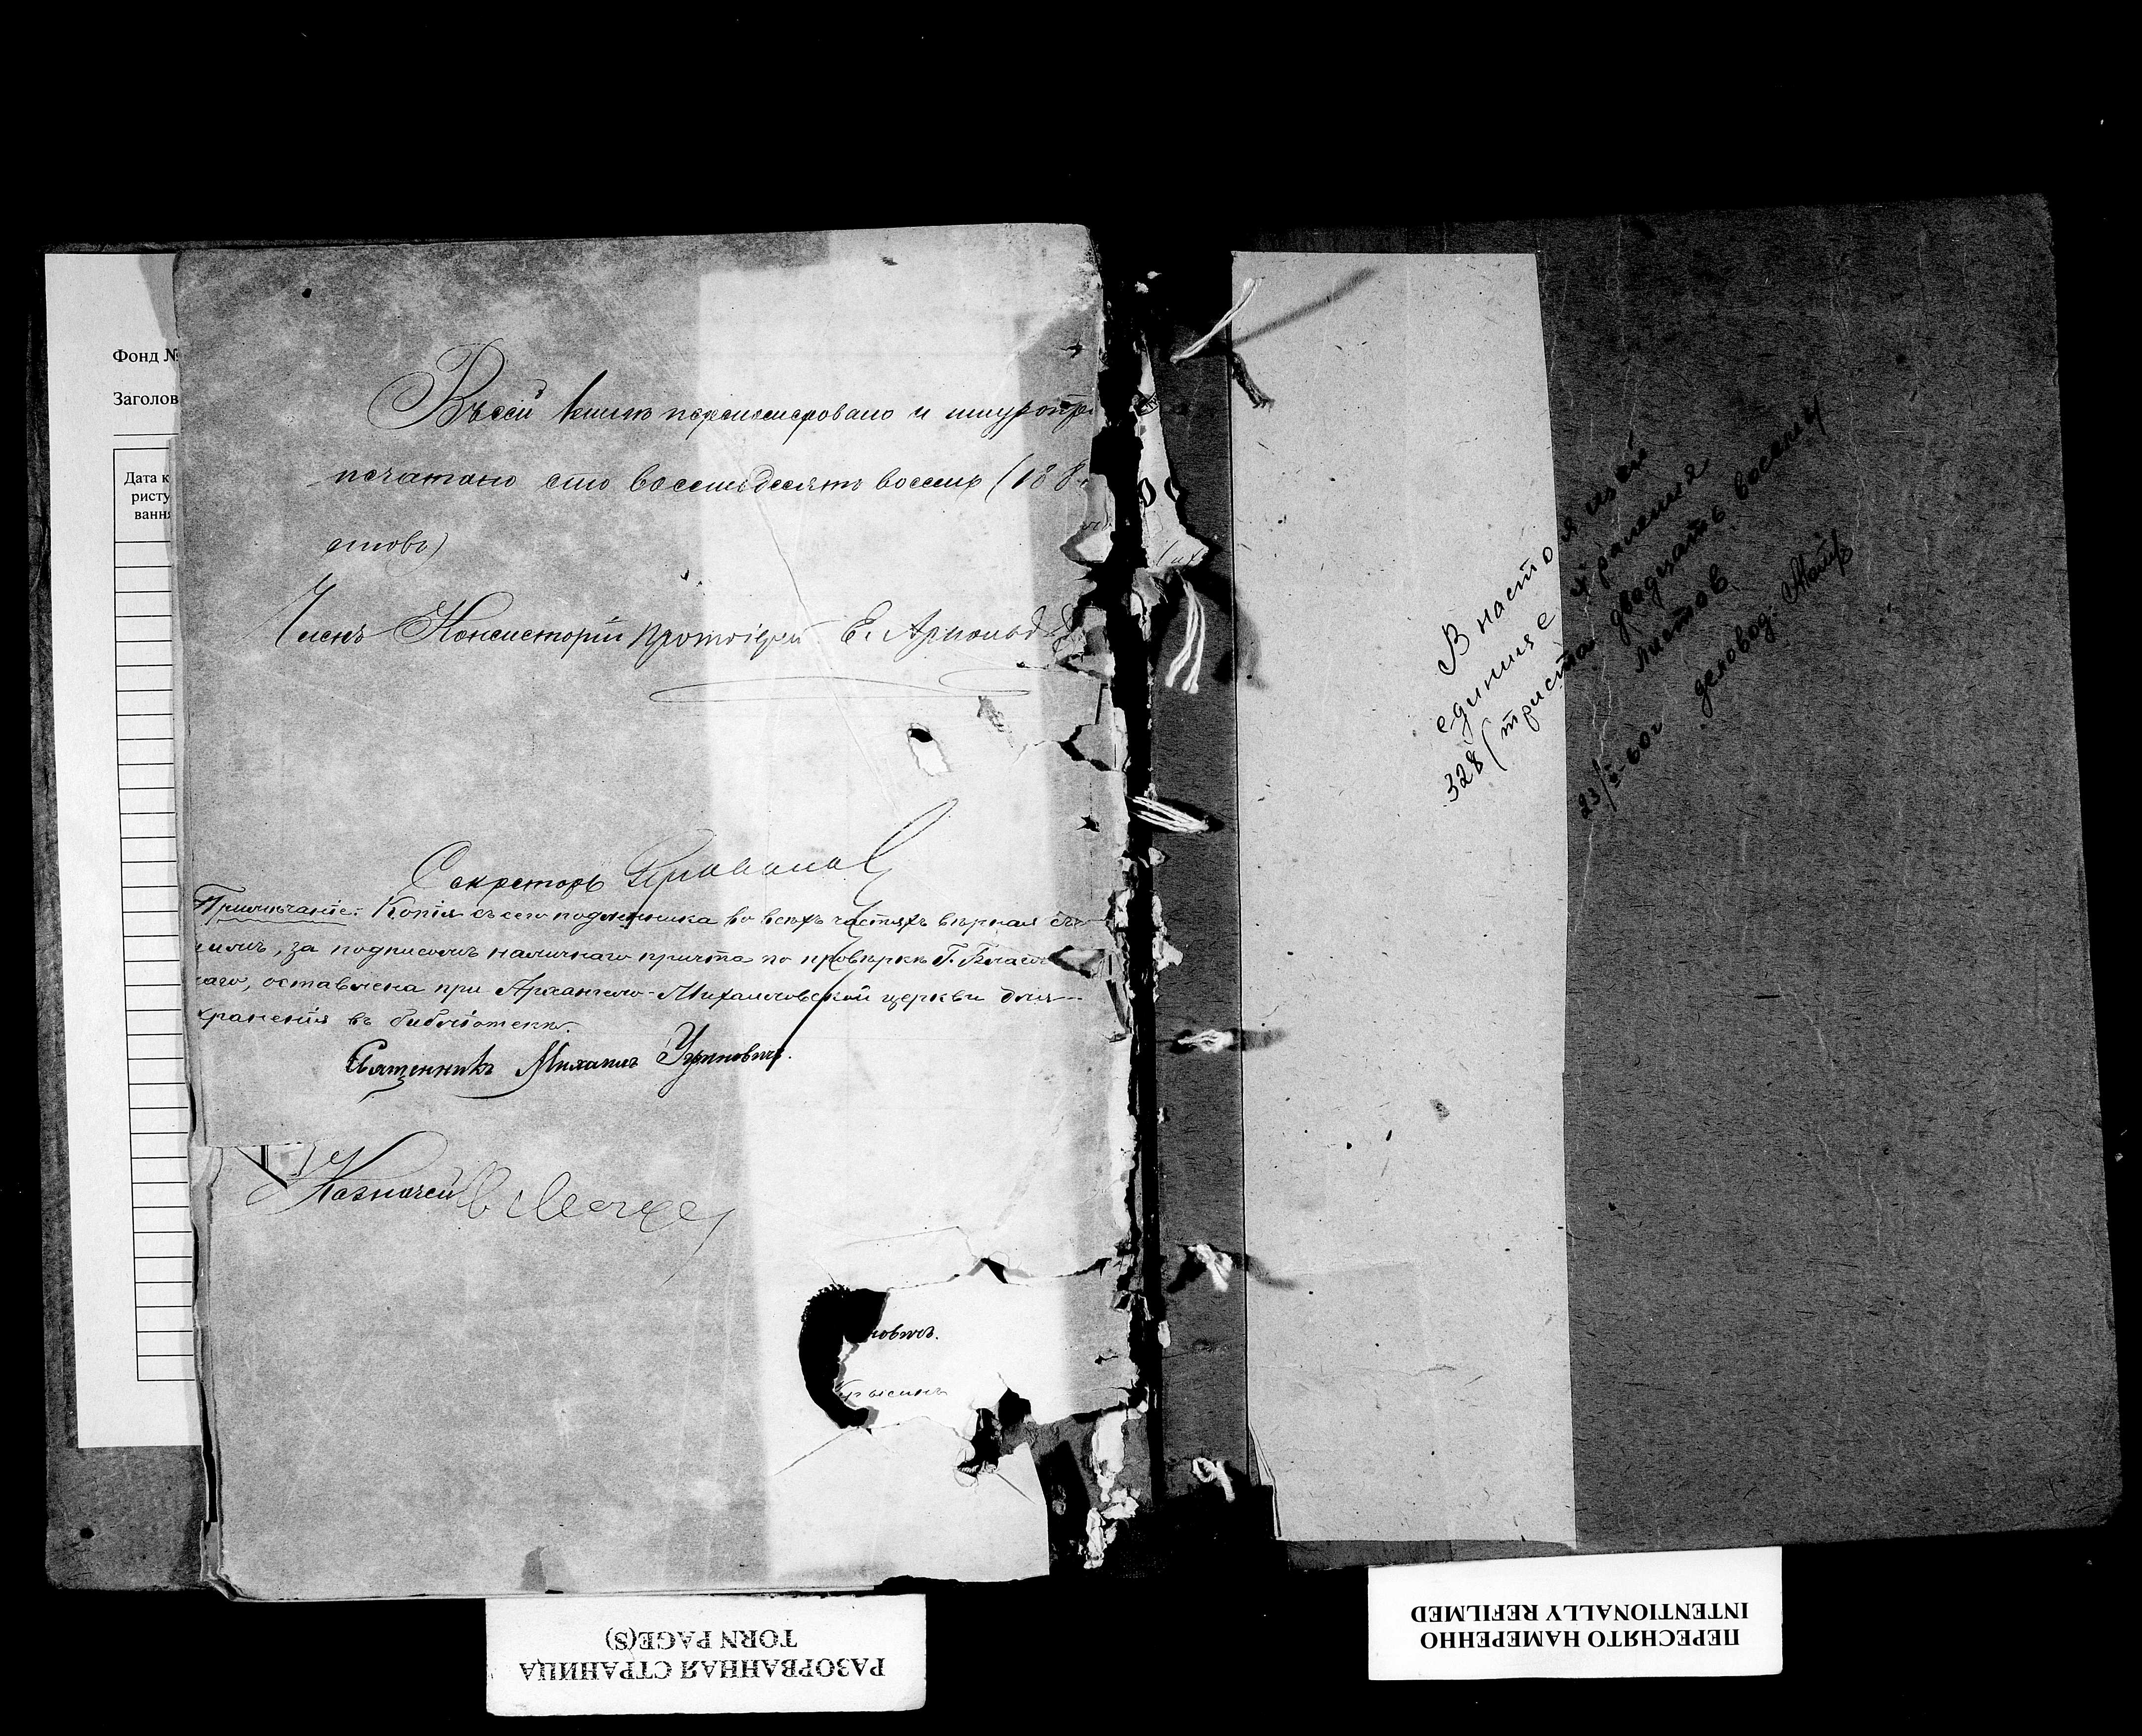 Фонд №
Заголов
Дата к
ристу
вання
Въ сей книгѣ перенумеровано и шнуропри
печатано сто восемьдесятъ восемь (188
стовъ)
Членъ Консисторіи протоіерей Е. Арнольд
Секретарь
Примѣчаніе: Копія съ сего подлинника во всѣхъ частяхъ вѣрная съ
за подписомъ наличнаго причта по провѣркѣ Г. Благо
наго, оставлена при Архангело-Михайловской церкви для
храненія въ библіотекѣ.
Священникъ Михаилъ
Казначей
новичъ.
В настоящей
единице хранения
328 (триста двадцать восемь)
листов
23/I-60г деловод.
РАЗОРВАННАЯ СТРАНИЦА
TORN PAGE(S)
ПЕРЕСНЯТО НАМЕРЕННО
INTENTIONALLY REFILMED